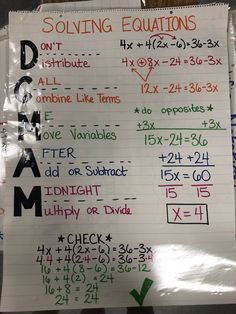 SOLVING EQUATIONS
DON'T
Distribute
CALL
Combine Like Terms
ME
Move Variables
AFTER
Add or Subtract
MIDNIGHT
Multiply or Divide
4x + 4(2x-6) = 36-3x
4x + 8x - 24 = 36-3x
12x - 24 = 36-3x
*do opposites*
+3x +3x
15x - 24 = 36
+24 +24
15x = 60
15 15
x = 4
*CHECK*
4x + 4(2x-6) = 36-3x
4·4 + 4(2·4-6) = 36-3·4
16 + 4(8-6) = 36-12
16 + 4(2) = 24
16 + 8 = 24
24 = 24